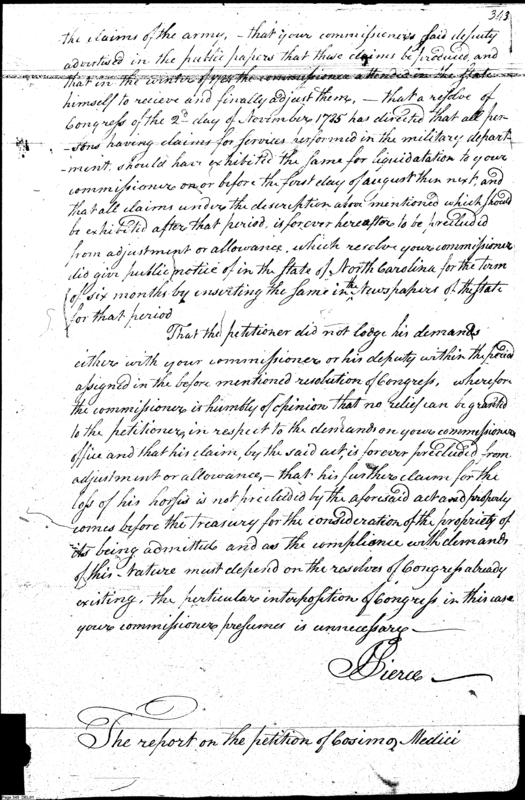 343
the claims of the army, - that your commissioners said deputy
advertised in the public papers that these claims be produced, and
that in the winter of 1785 the commissioner attended in the State
himself to recieve and finally adjust them, - that a resolve of
Congress of the 2d day of November 1785 has directed that all per-
sons having claims for services performed in the military depart-
ment, should have exhibited the same for liquidalation to your
commissioner on or before the first day of august then next, and
that all claims under the description above mentioned which should
be exhibited after that period, is forever hereafter to be precluded
from adjustment or allowance, which resolve your commissioner
did give public notice of in the State of North Carolina for the term
of six months by inserting the same in the Newspapers of the State
for that period
That the petitioner did not lodge his demands
either with your commissioner or his deputy within the period
assigned in the before mentioned resolution of Congress, wherefore
the commissioner is humbly of opinion that no relief can be granted
to the petitioner, in respect to the demands on your commissioners
office and that his claim, by the said act is forever precluded from
adjustment or allowance, - that his further claim for the
loss of his horses is not precluded by the aforesaid act and properly
comes before the treasury for the consideration of the propriety of
its being admitted and as the compliance with demands
of this Nature must depend on the resolves of Congress already
existing, the perticular interposition of Congress in this case
your commissioner presumes is unnecessary
Pierce
The report on the petition of Cosimo Medici